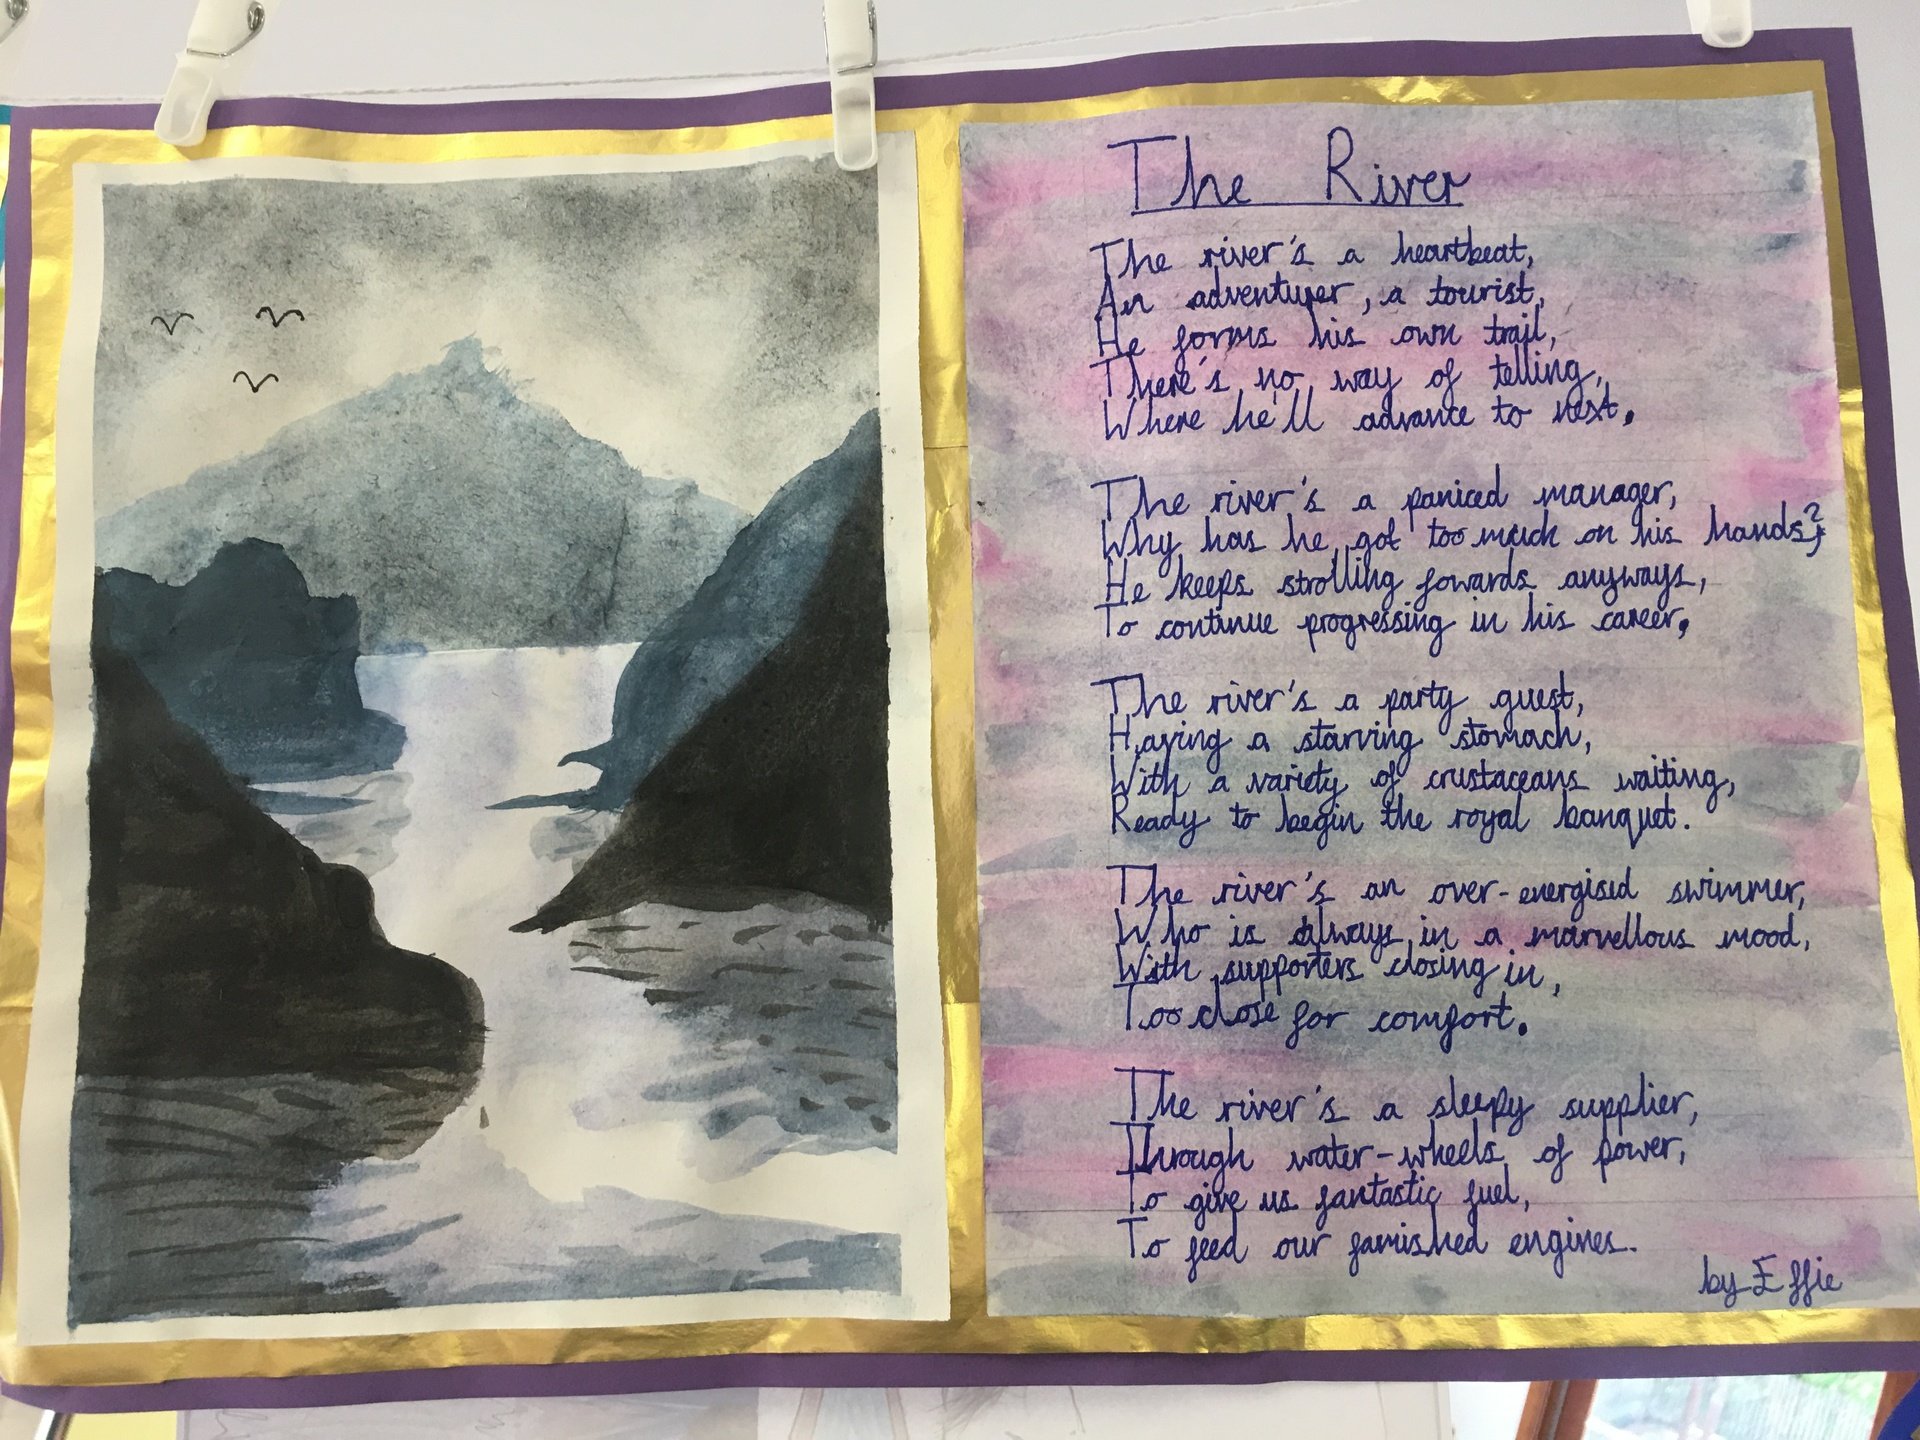 The River
The river's a heartbeat,
An adventurer, a tourist,
He forms his own trail,
There's no way of telling,
Where he'll advance to next.
The river's a paniced manager,
Why has he got too much on his hands?
He keeps strolling fowards anyways,
To continue progressing in his career.
The river's a party guest,
Having a starving stomach,
With a variety of crustaceans waiting,
Ready to begin the royal banquet.
The river's an over-energised swimmer,
Who is always in a marvellous mood,
With supporters closing in,
Too close for comfort.
The river's a sleepy supplier,
Through water-wheels of power,
To give us fantastic fuel,
To feed our famished engines.
by Effie